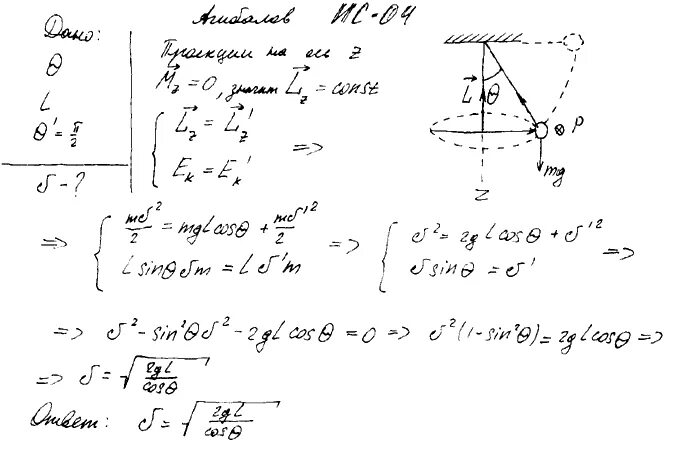 Агибалов ИС-04
Дано:
θ
L
θ' = π/2
υ - ?
Проекции на ось z
M⃗z = 0, значит L⃗z = const
{ L⃗z = L⃗z'
Eк = Eк' =>
L⃗ θ P
mg
z
=> { mυ²/2 = mgLcosθ + mυ'²/2
L sinθ υm = L υ'm
=> { υ² = 2gLcosθ + υ'²
υ sinθ = υ' =>
=> υ² - sin²θ υ² - 2gLcosθ = 0 => υ²(1 - sin²θ) = 2gLcosθ =>
=> υ = √(2gL/cosθ)
Ответ: υ = √(2gL/cosθ)